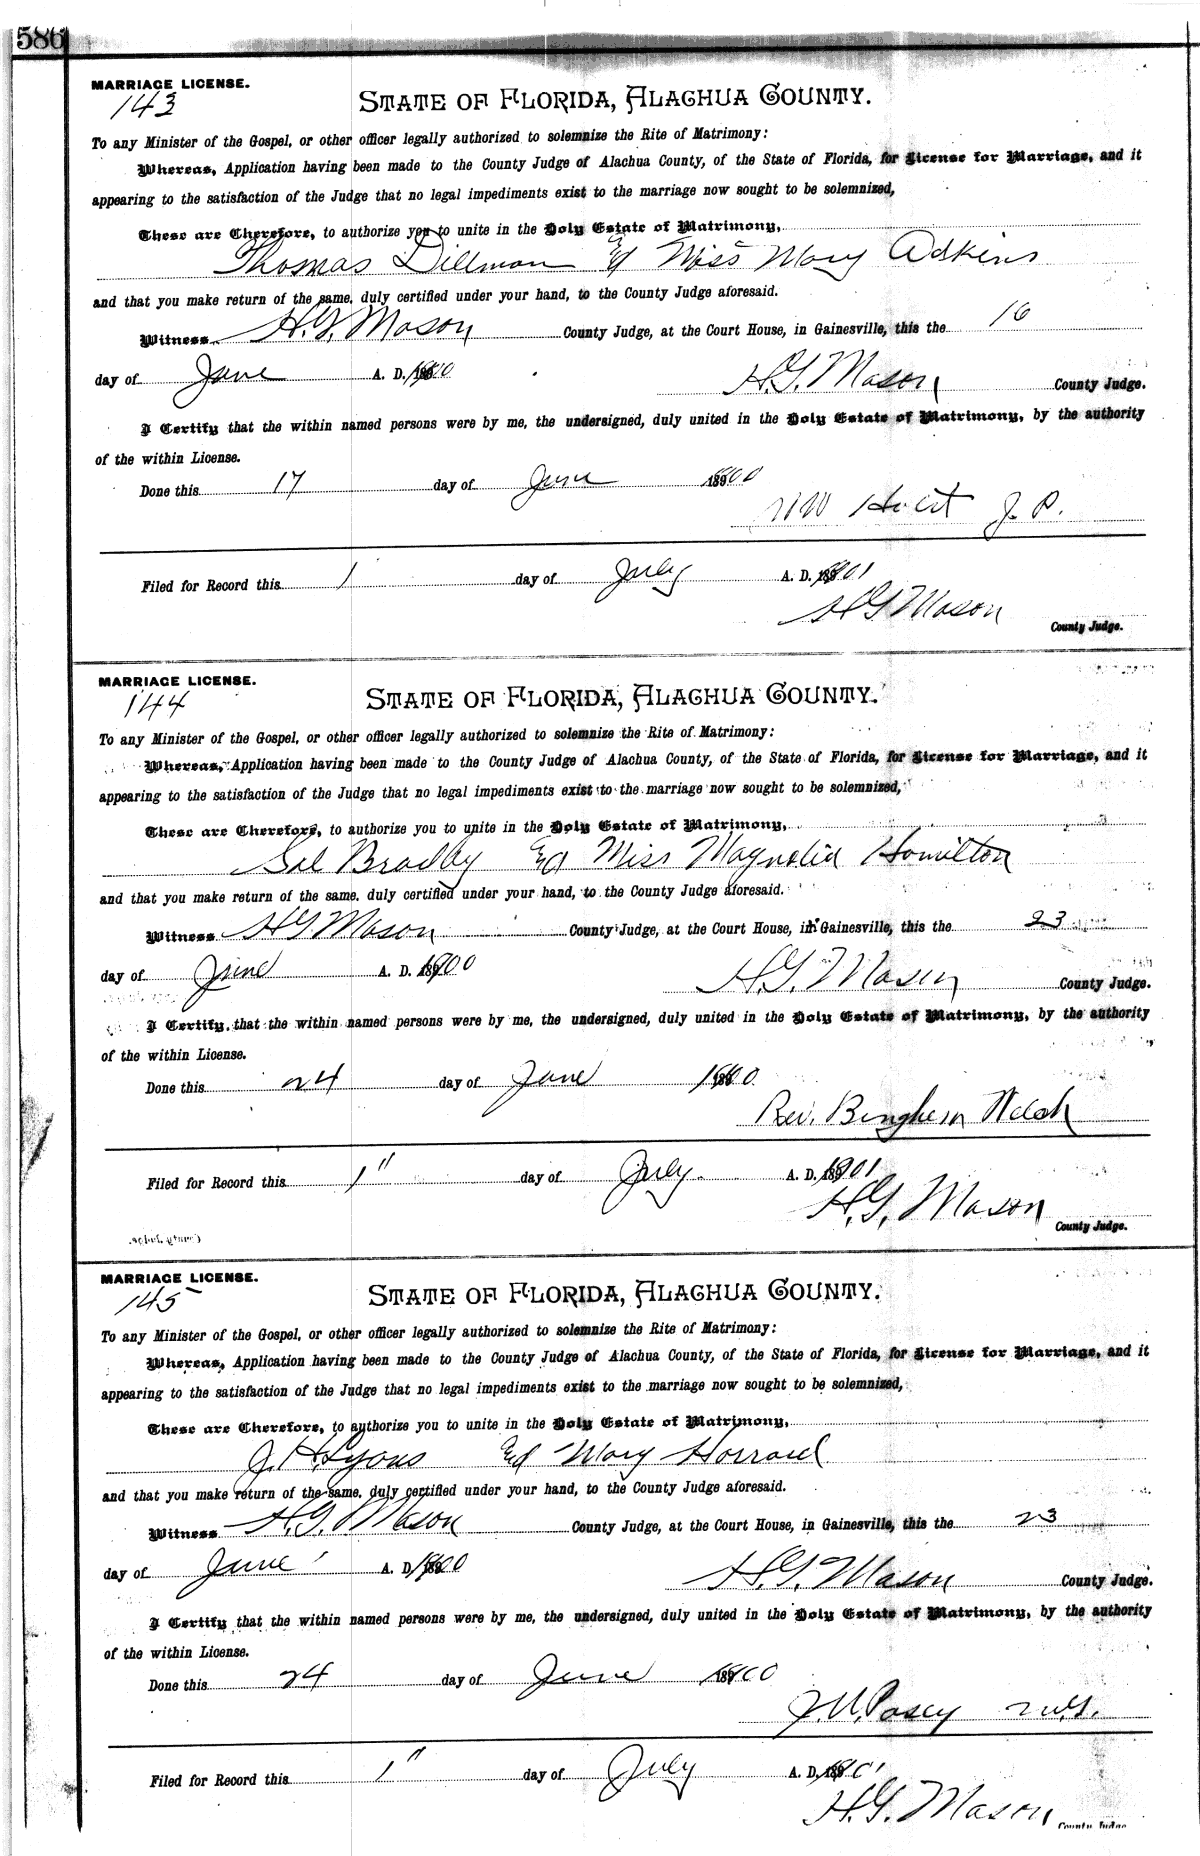 586
MARRIAGE LICENSE.
143
STATE OF FLORIDA, ALACHUA COUNTY.
To any Minister of the Gospel, or other officer legally authorized to solemnize the Rite of Matrimony:
Whereas, Application having been made to the County Judge of Alachua County, of the State of Florida, for License for Marriage, and it
appearing to the satisfaction of the Judge that no legal impediments exist to the marriage now sought to be solemnized,
These are Therefore, to authorize you to unite in the Holy Estate of Matrimony,
Thomas Dillman & Miss Mary Adkins
and that you make return of the same, duly certified under your hand, to the County Judge aforesaid.
Witness H.G. Mason County Judge, at the Court House, in Gainesville, this the 16
day of June A. D. 1900 H.G. Mason County Judge.
I Certify that the within named persons were by me, the undersigned, duly united in the Holy Estate of Matrimony, by the authority
of the within License.
Done this 17 day of June 1900
J. P.
Filed for Record this 1 day of July A. D. 1901
H G Mason
County Judge.
MARRIAGE LICENSE.
144
STATE OF FLORIDA, ALACHUA COUNTY.
To any Minister of the Gospel, or other officer legally authorized to solemnize the Rite of Matrimony:
Whereas, Application having been made to the County Judge of Alachua County, of the State of Florida, for License for Marriage, and it
appearing to the satisfaction of the Judge that no legal impediments exist to the marriage now sought to be solemnized,
These are Therefore, to authorize you to unite in the Holy Estate of Matrimony,
Sol Bradley & Miss Magnolia Hamilton
and that you make return of the same, duly certified under your hand, to the County Judge aforesaid.
Witness H G Mason County Judge, at the Court House, in Gainesville, this the 23
day of June A. D. 1900 H.G. Mason County Judge.
I Certify, that the within named persons were by me, the undersigned, duly united in the Holy Estate of Matrimony, by the authority
of the within License.
Done this 24 day of June 1900
Rev. Bingham Welch
Filed for Record this 1" day of July. A. D. 1901
H.G. Mason
County Judge.
MARRIAGE LICENSE.
145
STATE OF FLORIDA, ALACHUA COUNTY.
To any Minister of the Gospel, or other officer legally authorized to solemnize the Rite of Matrimony:
Whereas, Application having been made to the County Judge of Alachua County, of the State of Florida, for License for Marriage, and it
appearing to the satisfaction of the Judge that no legal impediments exist to the marriage now sought to be solemnized,
These are Therefore, to authorize you to unite in the Holy Estate of Matrimony,
J. H. Lyons & Mary Horrard
and that you make return of the same, duly certified under your hand, to the County Judge aforesaid.
Witness H.G. Mason County Judge, at the Court House, in Gainesville, this the 23
day of June A. D. 1900 H.G. Mason County Judge.
I Certify that the within named persons were by me, the undersigned, duly united in the Holy Estate of Matrimony, by the authority
of the within License.
Done this 24 day of June 1900
J. N. Posey M.G.
Filed for Record this 1" day of July A. D. 1901
H.G. Mason
County Judge